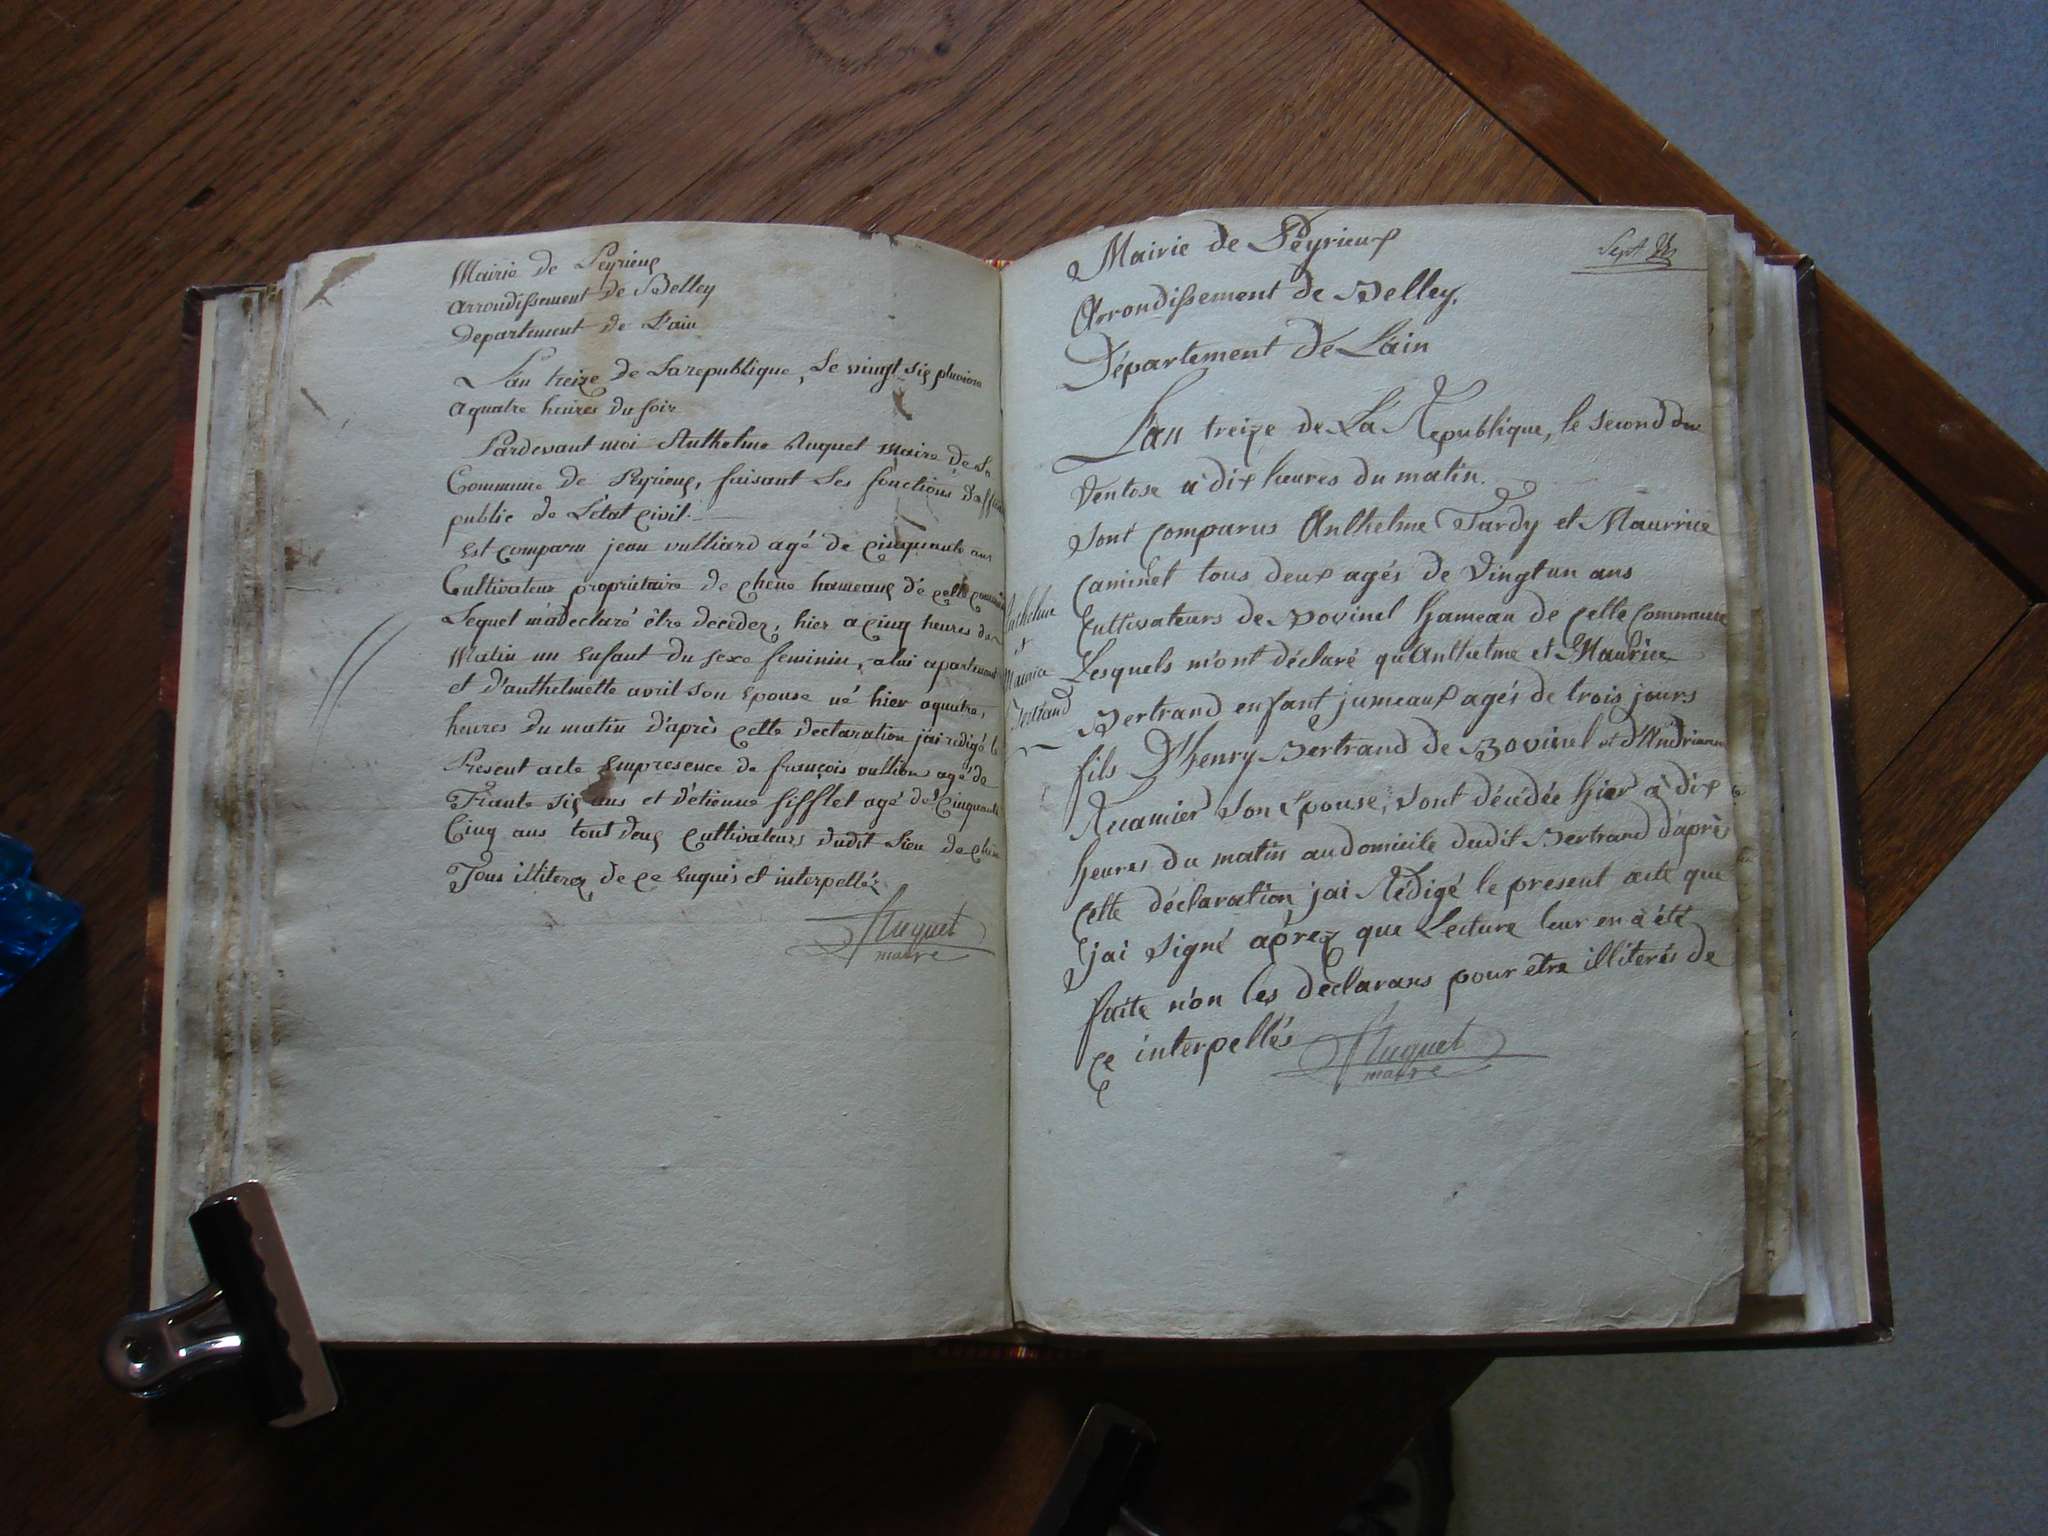 Mairie de Peyrieux
arrondissement de Belley
departement de L'ain
L'an treize de La republique, Le vingt six pluviose
a quatre heures du soir
Pardevant moi Anthelme Huguet maire de La
Commune de Peyrieux, faisant Les fonctions d'officier
public de L'état civil.
est comparu jean vulliard agé de cinquante ans
Cultivateur proprietaire de chêne hameaux de cette commune
Lequel m'a declaré être decedez, hier a cinq heures du
Matin un enfant du sexe feminin, a lui apartenant
et d'anthelmette avril son epouse né hier a quatre,
heures du matin d'après cette declaration j'ai redigé le
Present acte en presence de françois vullion agé de
Trante six ans et d'etienne fifflet agé de Cinquante
Cinq ans tout deux cultivateurs dudit Lieu de chêne
Tous illiterez de ce enquis et interpellés
Huguet
maire
Sept
Mairie de Peyrieux
Arrondissement de Belley.
Département de Lain
L'an treize de La République, le second du
Ventose a dix heures du matin.
sont comparus Anthelme Tardy et Maurrice
Caminet tous deux agés de vingt un ans
Cultivateurs de Bovinel hameau de cette commune
Lesquels m'ont déclaré qu'Anthelme et Maurice
Bertrand enfant jumeaux agés de trois jours
fils D'henry Bertrand de Bovinel et d'Andrienne
Récamier son Epouse, sont décédée hier à dix
heures du matin au domicile dudit Bertrand d'après
cette déclaration, jai Rédigé le present acte que
j'ai signé aprez que Lecture leur en à été
faite n'on les déclarans pour être illiterés de
ce interpellés
Huguet
maire
Anthelme
et
Maurice
Bertrand